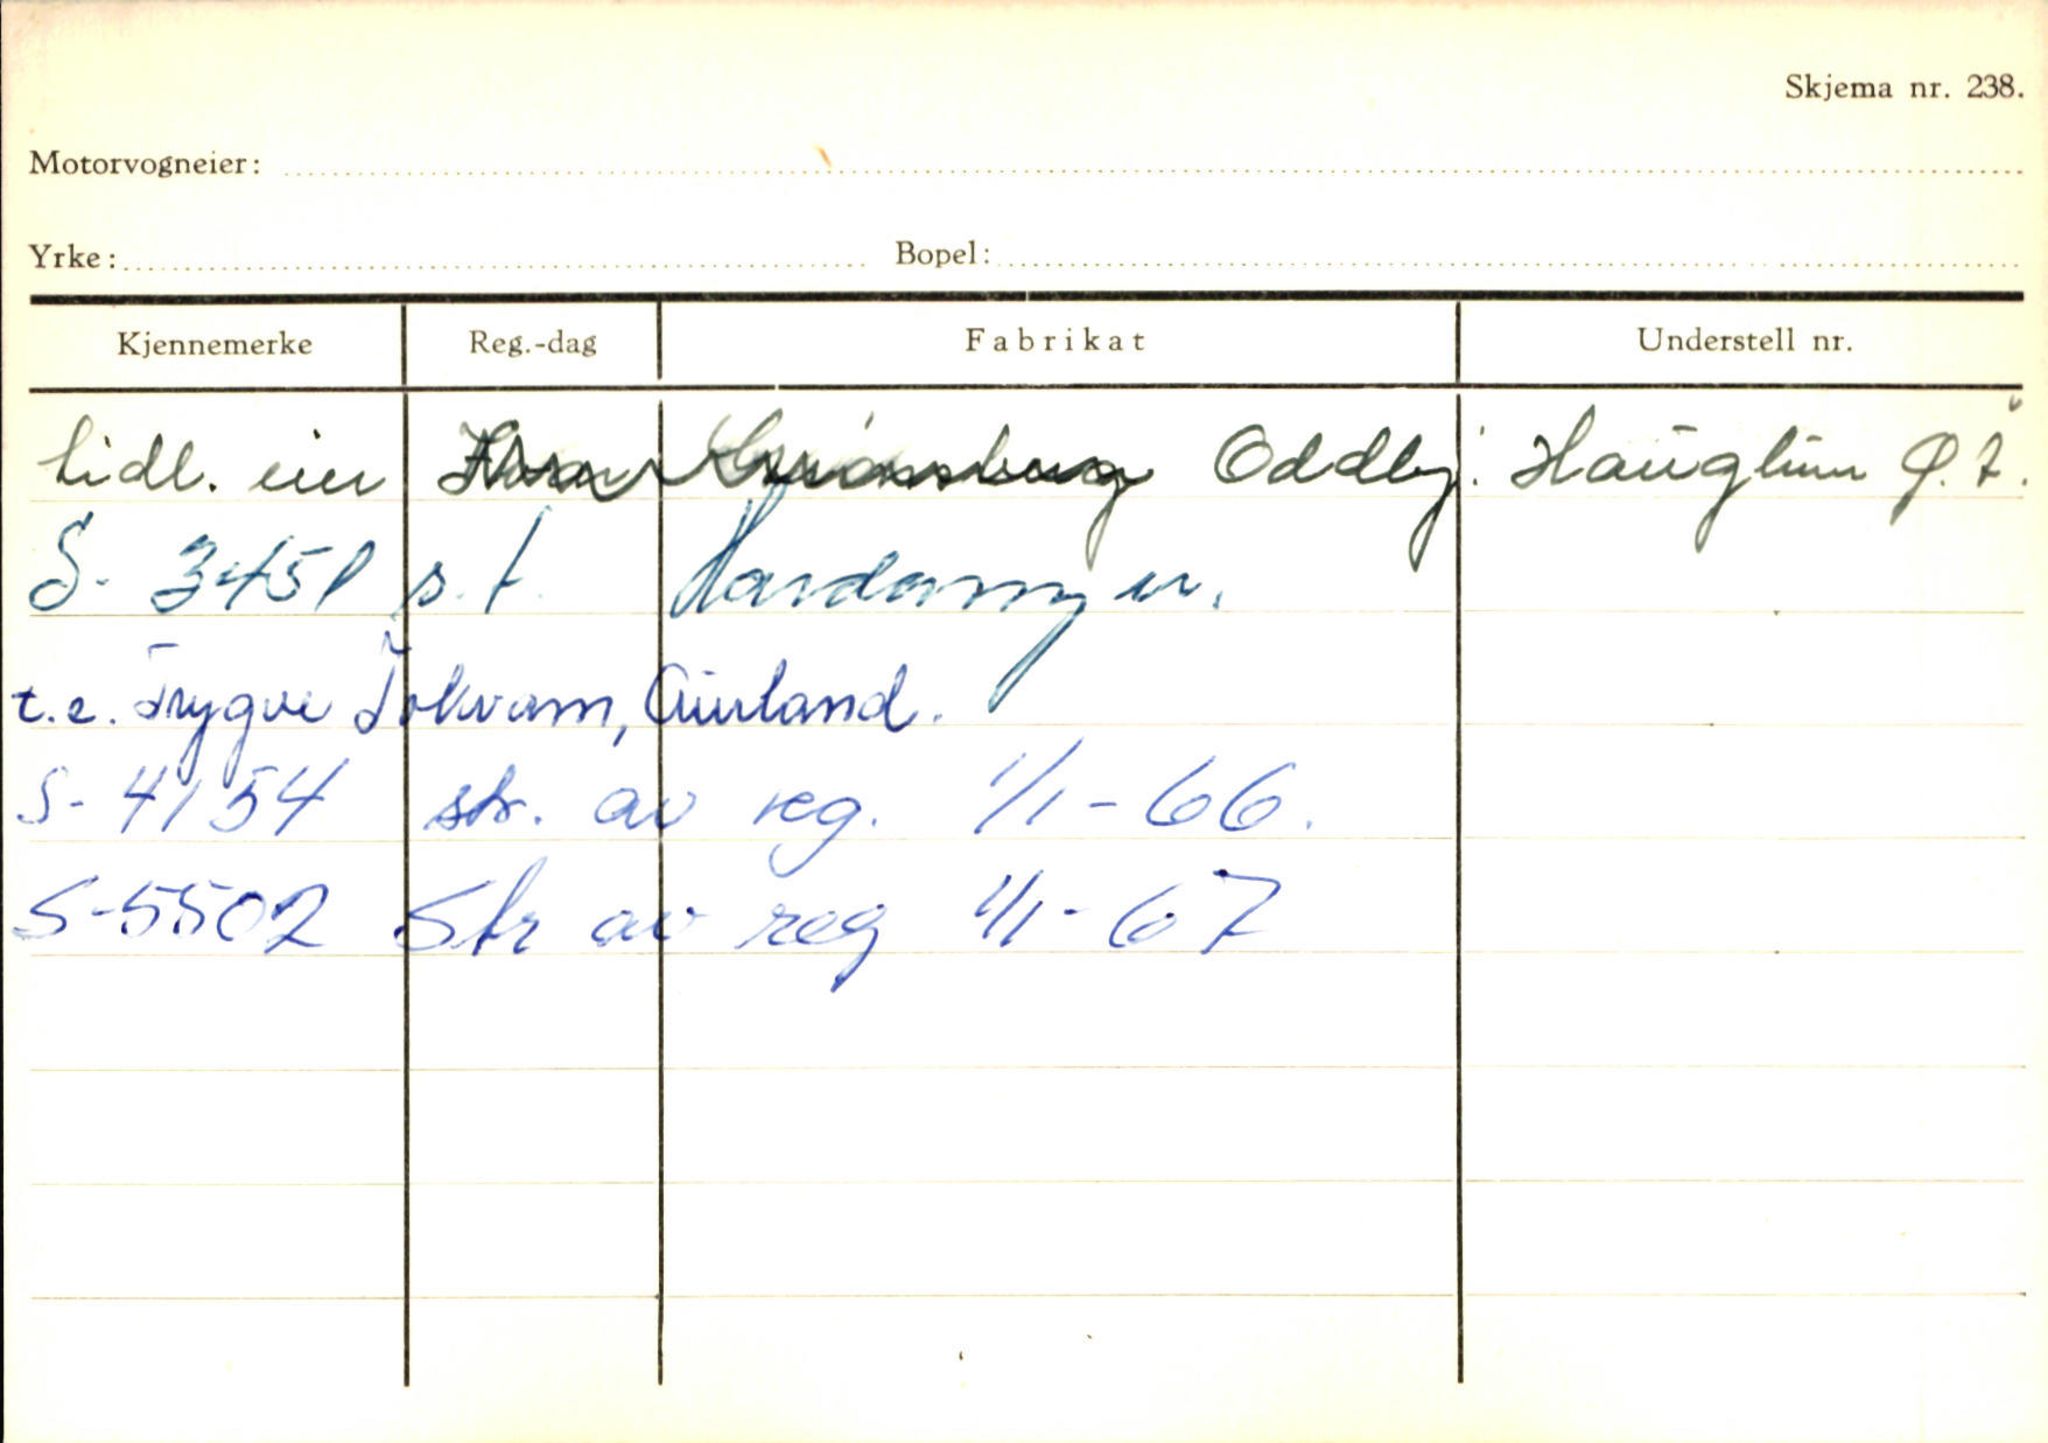 Skjema nr. 238.
Motorvogneier:
Yrke: Bopel:
Kjennemerke Reg.-dag Fabrikat Understell nr.
tidl. eier Oddbj. Hauglum Ø.Å.
S- 3451 s.t. Hardanger.
t.e. Trygve Tokvam, Aurland.
S- 4154 str. av reg. 1/1-66.
S-5502 Str av reg 1/1-67